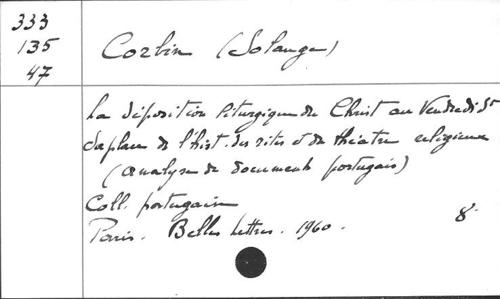 333
135
47
Corbin (Solange)
La déposition liturgique du Christ au Vendredi St
Sa place ds l'hist. des rites et du théatre religieux
(analyse de documents portugais)
Coll. portugaise
Paris. Belles Lettres. 1960. 8°